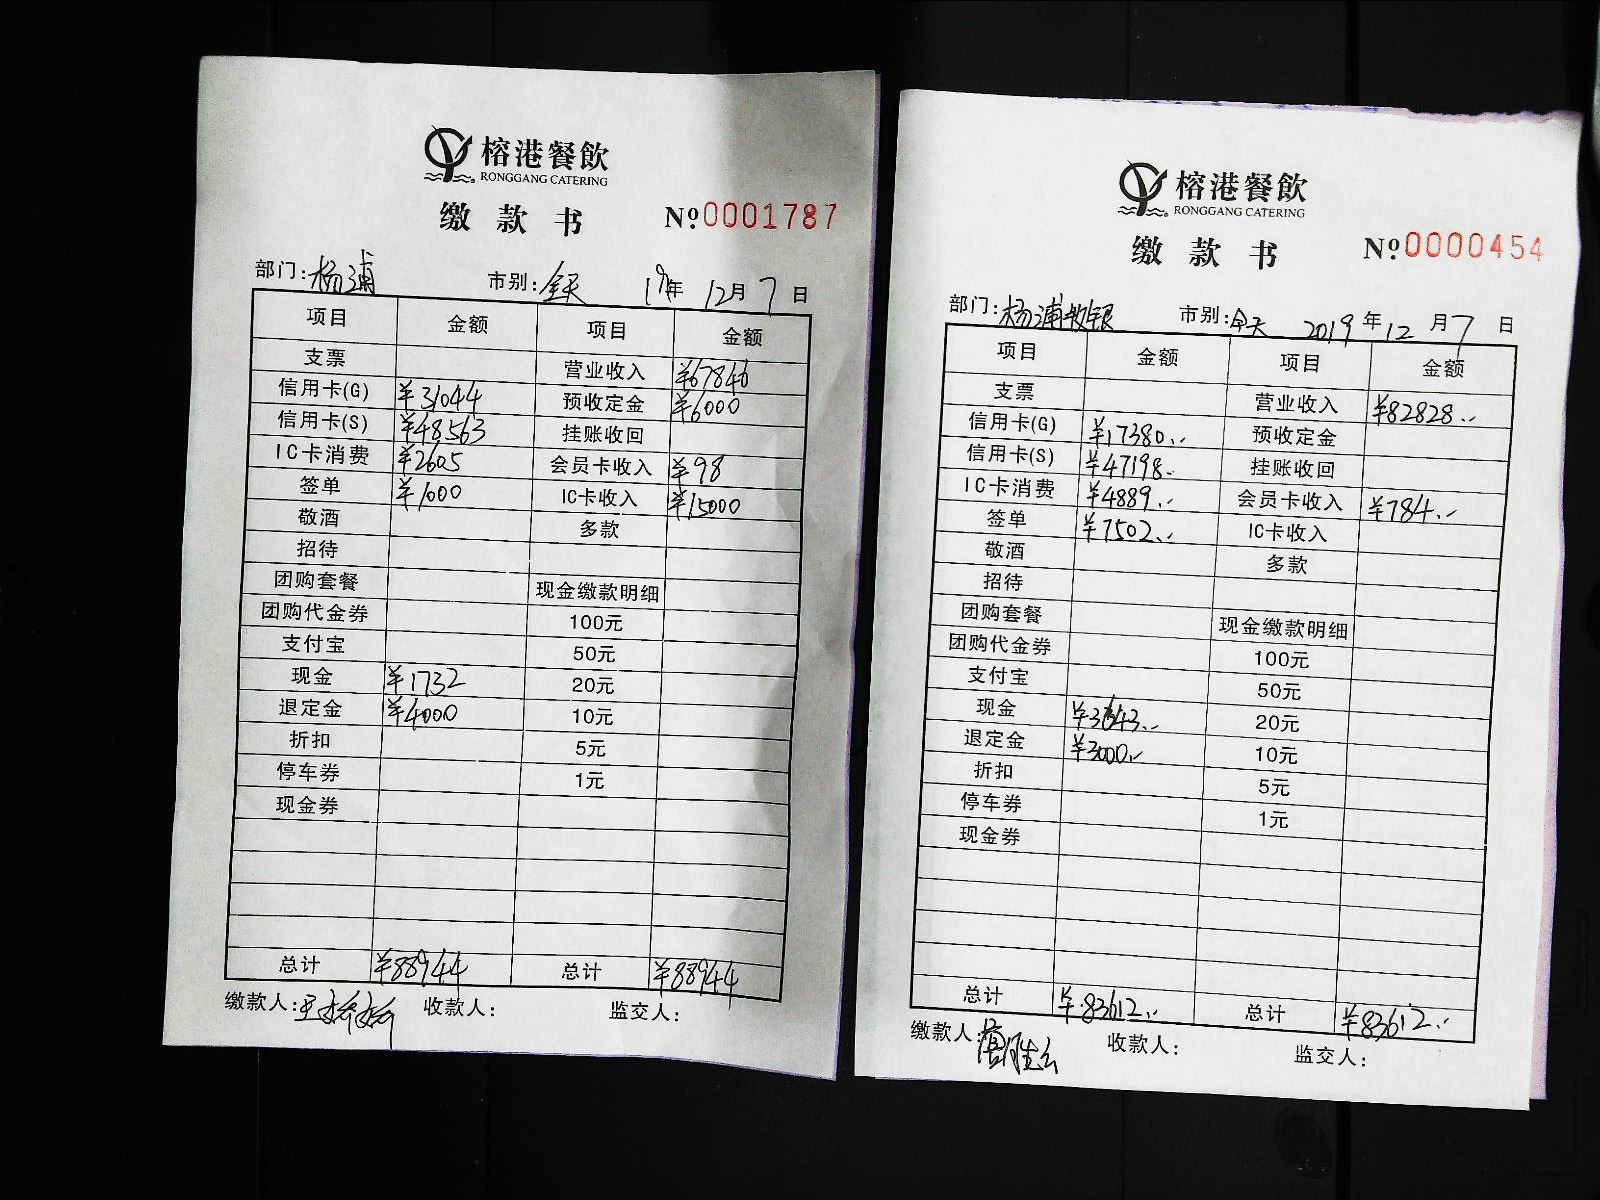 榕港餐飲
RONGGANG CATERING
缴款书 №0001787
部门:杨浦 市别:全天 19年12月7日
项目 金额 项目 金额
支票 营业收入 ¥67846
信用卡(G) ¥31044 预收定金 ¥6000
信用卡(S) ¥48563 挂账收回
IC卡消费 ¥2605 会员卡收入 ¥98
签单 ¥1000 IC卡收入 ¥15000
敬酒 多款
招待
团购套餐 现金缴款明细
团购代金券 100元
支付宝 50元
现金 ¥1732 20元
退定金 ¥4000 10元
折扣 5元
停车券 1元
现金券
总计 ¥88944 总计 ¥88944
缴款人: 收款人: 监交人:
榕港餐飲
RONGGANG CATERING
缴款书 №0000454
部门:杨浦收银 市别:全天 2019年12月7日
项目 金额 项目 金额
支票 营业收入 ¥82828.-
信用卡(G) ¥17380.- 预收定金
信用卡(S) ¥47198.- 挂账收回
IC卡消费 ¥4889.- 会员卡收入 ¥784.-
签单 ¥7502.- IC卡收入
敬酒 多款
招待
团购套餐 现金缴款明细
团购代金券 100元
支付宝 50元
现金 ¥3643.- 20元
退定金 ¥3000.- 10元
折扣 5元
停车券 1元
现金券
总计 ¥83612.- 总计 ¥83612.-
缴款人: 收款人: 监交人: